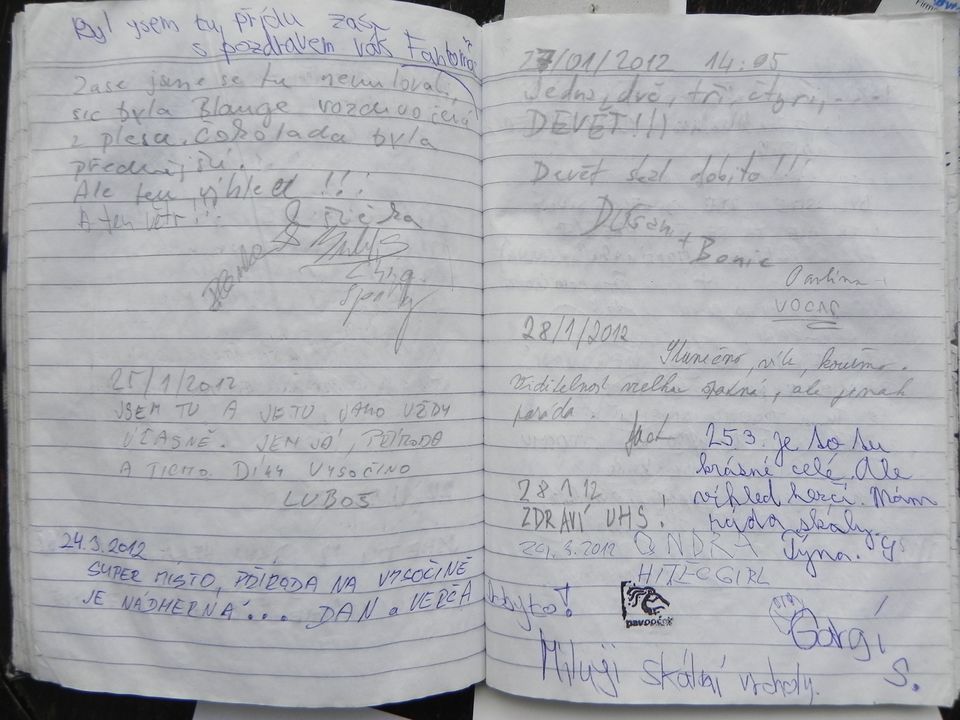 Byl jsem tu, přijdu zase
s pozdravem váš Fantomas
Zase jsme se tu nemilovali,
sic byla Blange
z plesu. Čokoláda byla
přednější.
Ale ten výhled!!!
A ten vítr!!!
25/1/2012
JSEM TU A JE TU JAKO VŽDY
ÚŽASNĚ. JEN JÁ, PŘÍRODA
A TICHO. DÍKY VYSOČINO
LUBOŠ
24.3.2012
SUPER MÍSTO, PŘÍRODA NA VYSOČINĚ
JE NÁDHERNÁ... DAN a VERČA
27/01/2012 14:05
Jedna, dvě, tři, čtyři, ....
DEVĚT!!!
Devět skal dobito!!!
Dušan + Bonie
Pavlína +
28/1/2012
Slunečno, vítr, kouřmo.
Viditelnost velka spatná, ale jinak
paráda.
25.3. je to tu
krásné celé. Ale
výhled hezčí. Mám
ráda skály.
Týna.
28.1.12
ZDRAVÍ UHS!
24.3.2012 ONDRA
HITECGIRL
pavoučník
Gargi
S.
Miluji skální vrcholy.